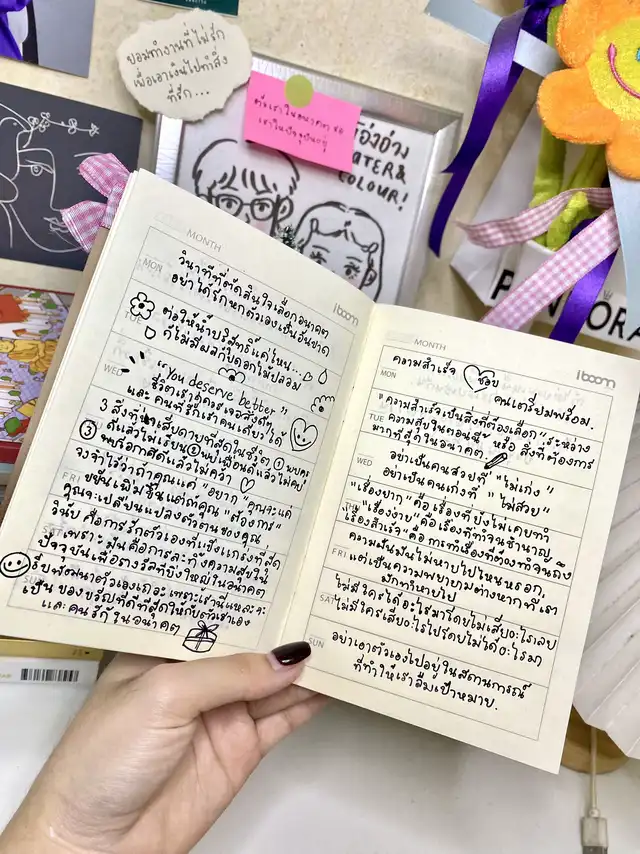 ยอมทำงานที่ไม่รัก
เพื่อเอาเงินไปทำสิ่ง
ที่รัก...
ตัวเราในอนาคต รอ
เราในปัจจุบันอยู่
อ่งอ่าง
WATER&
COLOUR!
MONTH
iboom
MON
วินาทีที่ตัดสินใจเลือกอนาคต
อย่าได้รักหกตัวเองเป็นอันขาด
TUE
ต่อให้น้ำบริสุทธิ์แค่ไหน...
ก็ไม่มีผลกับดอกไม้ปลอม
WED
"You deserve better"
ชีวิตเราคู่ควรเจอสิ่งดีๆ
และคนที่รักเราคนเดียวได้
3 สิ่งที่น่าเสียดายที่สุดในชีวิต ① พบครู
ดีแล้วไม่เรียน ② พบเพื่อนดีแล้วไม่คบ
③ พบโอกาสดีแล้วไม่คว้า
FRI
จงจำไว้ว่าถ้าคุณแค่ "อยาก" คุณจะแค่
ขยันเพิ่มขึ้นแต่ถ้าคุณ "ต้องการ"
คุณจะเปลี่ยนแปลงตัวตนของคุณ
วินัย คือการรักตัวเองที่แข็งแกร่งที่สุด
เพราะมันคือการละทิ้งความสุขใน
ปัจจุบันเพื่อรางวัลที่ยิ่งใหญ่ในอนาคต
SUN
รีบพัฒนาตัวเองเถอะ เพราะเรานี่แหละจะ
เป็นของขวัญที่ดีที่สุดให้กับตัวเราเอง
และคนรักในอนาคต
MONTH
iboom
MON
ความสำเร็จ ชอบ คนเตรียมพร้อม.
TUE
"ความสำเร็จเป็นสิ่งที่ต้องเลือก" ระหว่าง
ความสุขในตอนนี้ หรือ สิ่งที่ต้องการ
มากที่สุดในอนาคต.
WED
อย่าเป็นคนสวยที่ "ไม่เก่ง"
อย่าเป็นคนเก่งที่ "ไม่สวย"
"เรื่องยาก" คือ เรื่องที่ยังไม่เคยทำ
"เรื่องง่าย" คือ เรื่องที่ทำจนชำนาญ
เรื่องสำเร็จ" คือ การทำเรื่องที่ต้องทำจนถึง
FRI
ความฝันมันไม่หายไปไหนหรอก,
แต่เป็นความพยายามต่างหากที่เรา
มักทำหายไป
SAT
ไม่มีใครได้อะไรมาโดยไม่เสียอะไรเลย
ไม่มีใครเสียอะไรไปโดยไม่ได้อะไรมา
SUN
อย่าเอาตัวเองไปอยู่ในสถานการณ์
ที่ทำให้เราลืมเป้าหมาย.